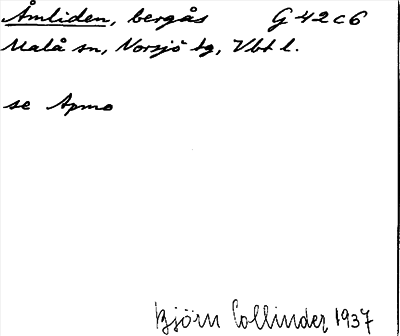 Åmliden, bergås G 42 c 6
Malå sn, Norsjö tg, Vbt l.
se Apmo
Björn Collinder 1937